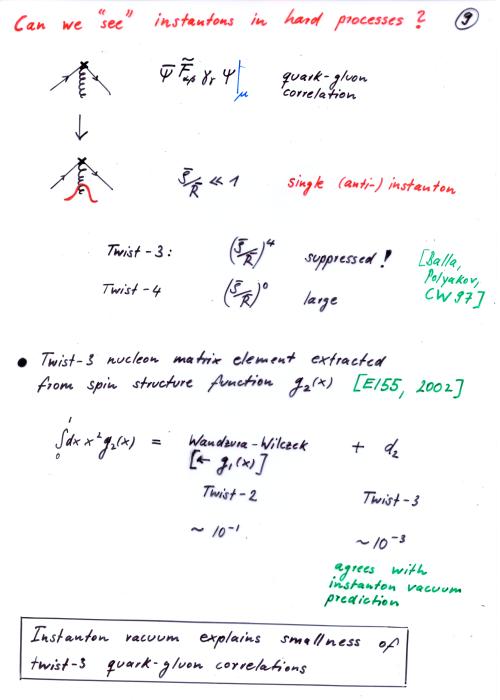 Can we "see" instantons in hard processes? ⑨
ψ̄ F̃αβ γγ ψ|μ quark-gluon
correlation
ρ̄/R̄ ≪ 1 single (anti-) instanton
Twist-3: (ρ̄/R̄)⁴ suppressed! [Balla,
Polyakov,
CW 97]
Twist-4 (ρ̄/R̄)⁰ large
• Twist-3 nucleon matrix element extracted
from spin structure function g₂(x) [E155, 2002]
∫₀¹dx x² g₂(x) = Wandzura-Wilczek + d₂
[← g₁(x)]
Twist-2 Twist-3
~ 10⁻¹ ~ 10⁻³
agrees with
instanton vacuum
prediction
Instanton vacuum explains smallness of
twist-3 quark-gluon correlations